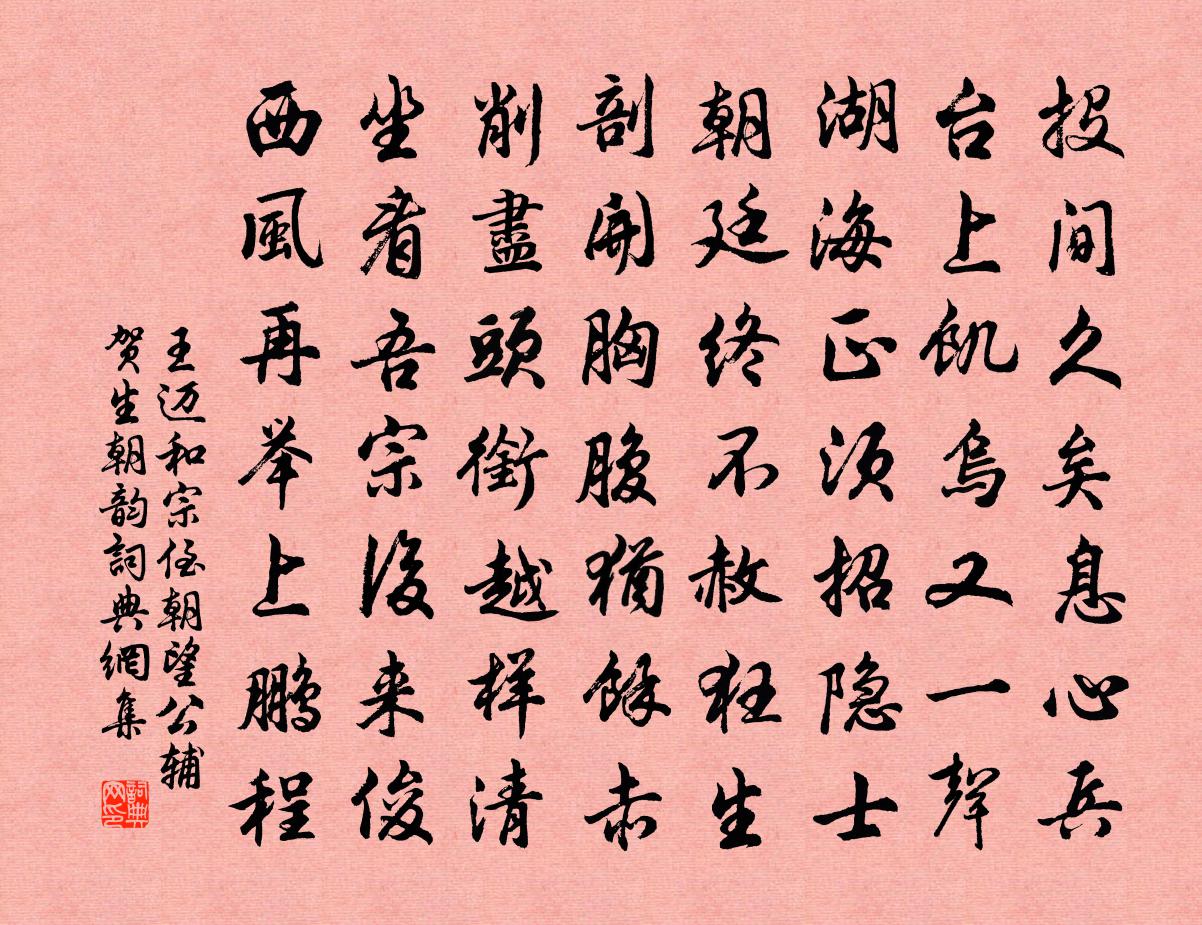 投间久矣息心兵
台上飢烏又一聲
湖海正須招隐士
朝廷終不赦狂生
剖開胸腹猶餘赤
削盡頭銜越樣清
坐看吾宗後来俊
西風再举上鹏程
王迈和宗侄朝望公辅
贺生朝韵詞典網集
詞典网印